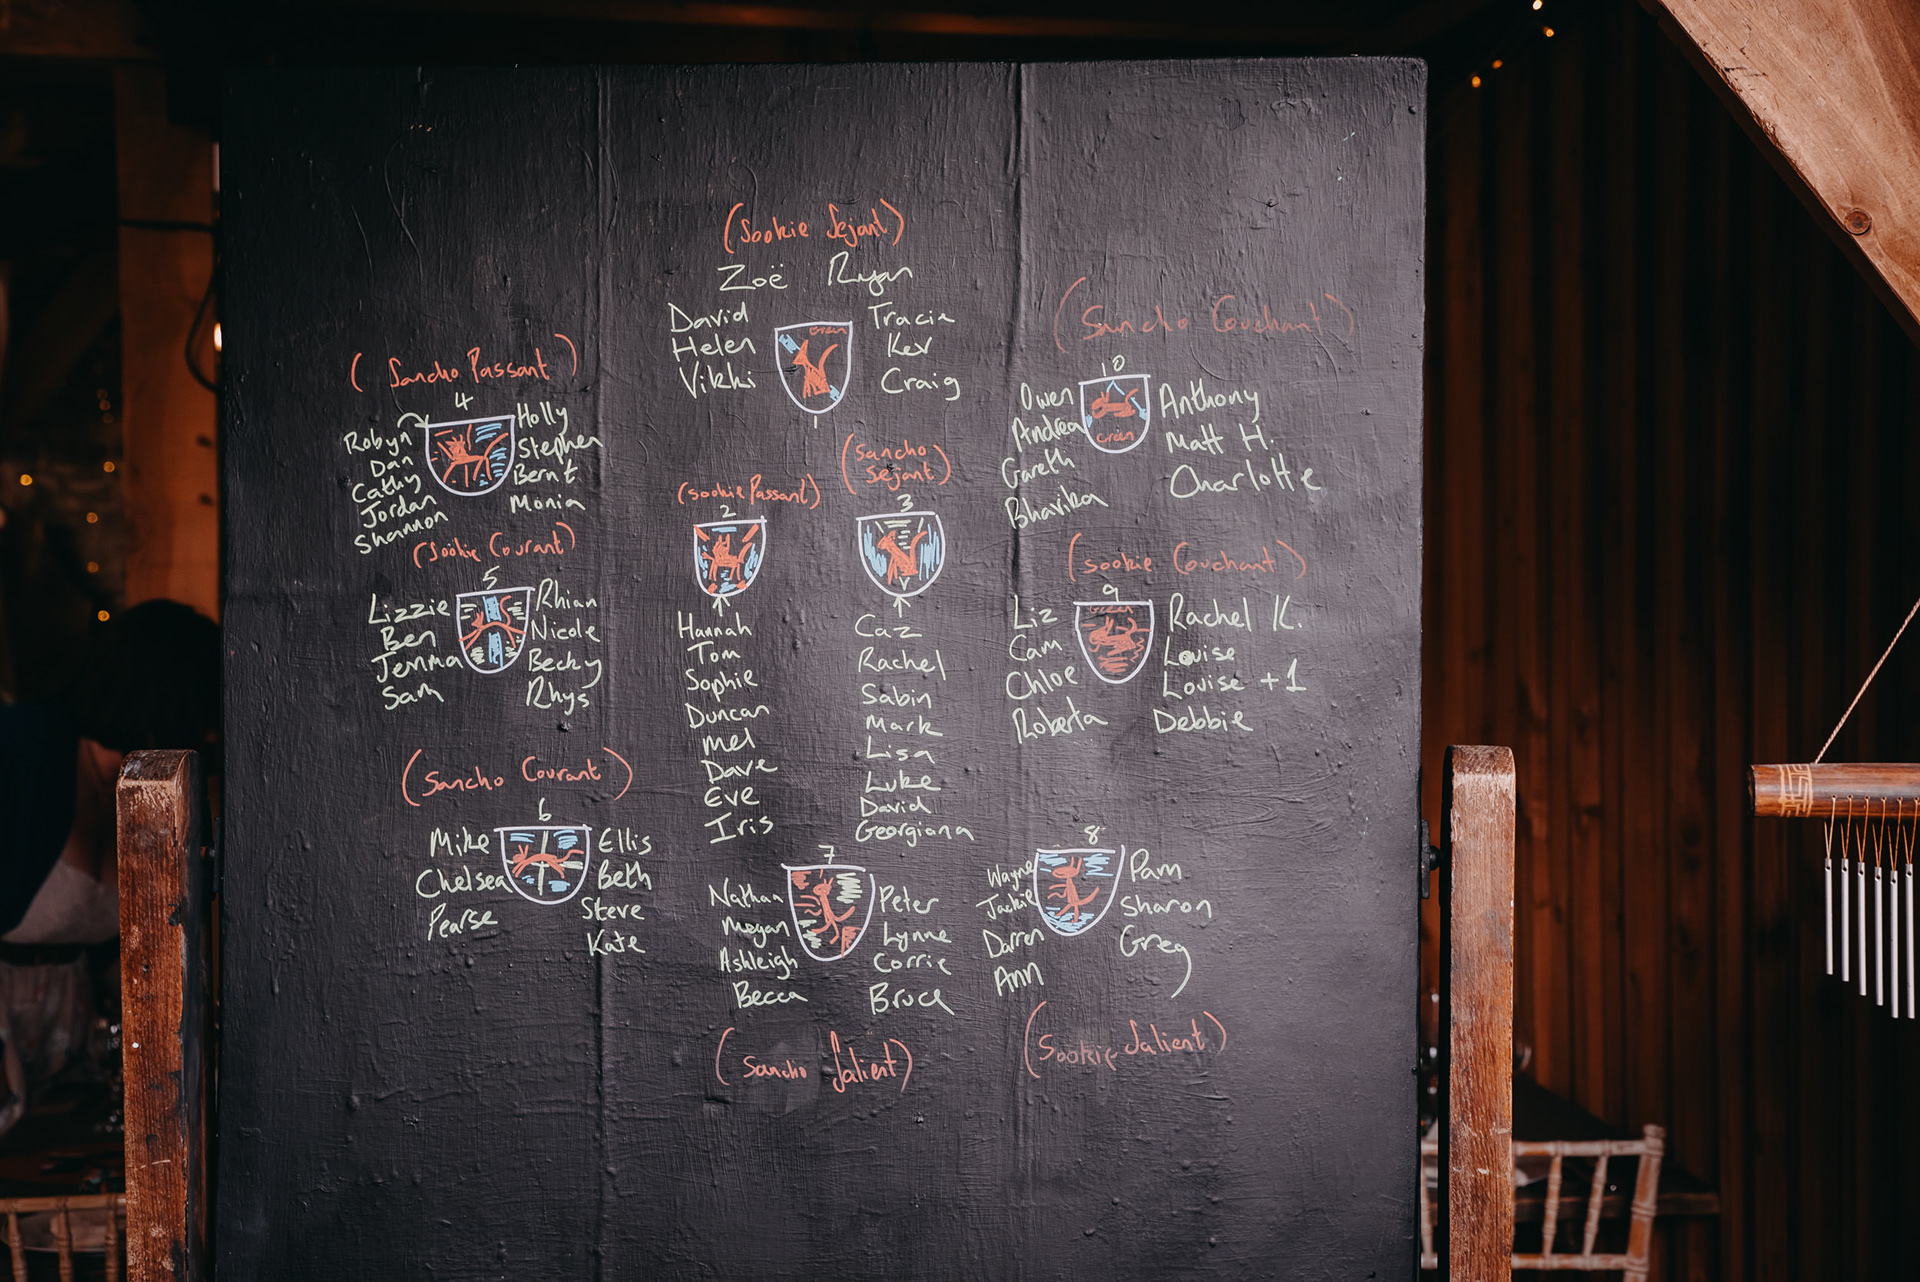 (Sookie Sejant)
Zoë Ryan
David
Helen
Vikki
Tracie
Kev
Craig
Green
1
(Sancho Passant)
4
Robyn
Dan
Cathy
Jordan
Shannon
Holly
Stephen
Bernt
Monia
(Sookie Courant)
5
Lizzie
Ben
Jemma
Sam
Rhian
Nicole
Becky
Rhys
(Sancho Courant)
6
Mike
Chelsea
Pearse
Ellis
Beth
Steve
Kate
(Sookie Passant)
2
Hannah
Tom
Sophie
Duncan
Mel
Dave
Eve
Iris
(Sancho
Sejant)
3
Caz
Rachel
Sabin
Mark
Lisa
Luke
David
Georgiana
(Sancho Couchant)
10
Owen
Andrea
Gareth
Bhavika
Green
Anthony
Matt H.
Charlotte
(Sookie Couchant)
9
Green
Liz
Cam
Chloe
Roberta
Rachel K.
Louise
Louise +1
Debbie
7
Nathan
Megan
Ashleigh
Becca
Peter
Lynne
Corrie
Bruce
(Sancho Salient)
8
Wayne
Jackie
Darren
Ann
Pam
Sharon
Greg
(Sookie Salient)